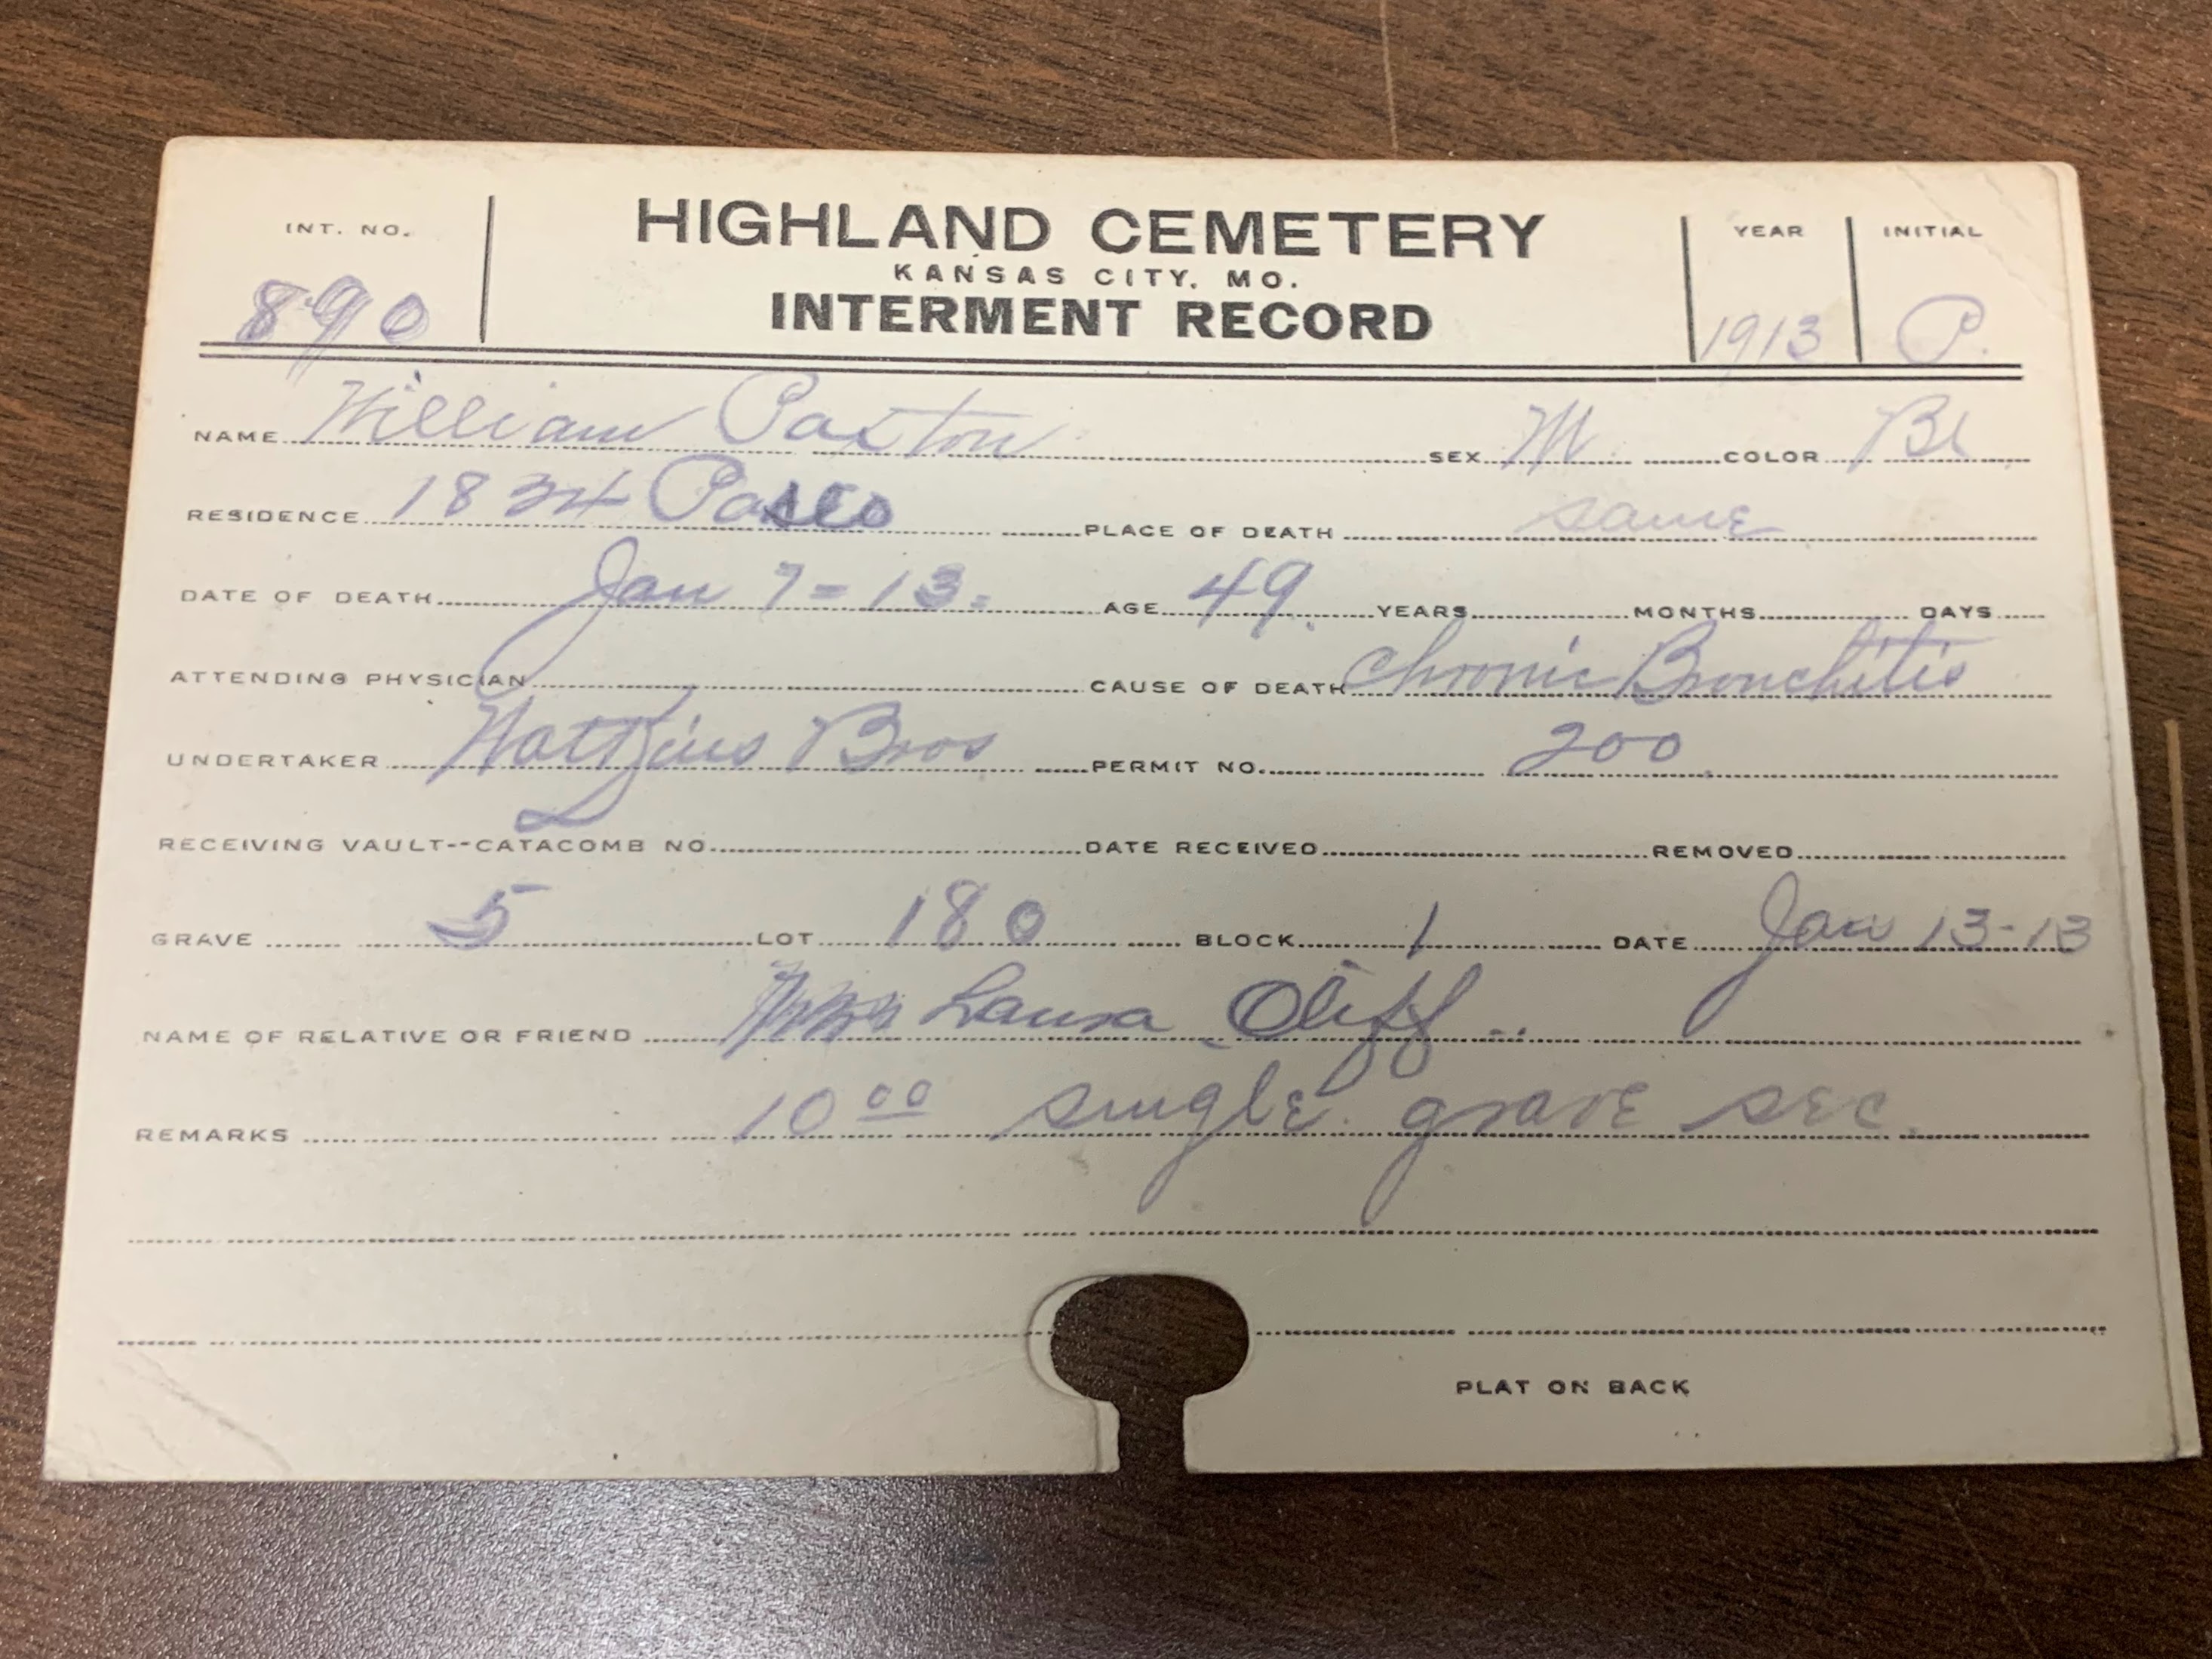 INT. NO. HIGHLAND CEMETERY YEAR INITIAL
KANSAS CITY, MO.
890 INTERMENT RECORD 1913 P.
NAME William Paxton SEX M COLOR Bl
RESIDENCE 1834 Paseo PLACE OF DEATH same
DATE OF DEATH Jan 7-13. AGE 49 YEARS MONTHS DAYS
ATTENDING PHYSICIAN CAUSE OF DEATH Chronic Bronchitis
UNDERTAKER Watkins Bros PERMIT NO. 200
RECEIVING VAULT--CATACOMB NO. DATE RECEIVED REMOVED
GRAVE 5 LOT 180 BLOCK 1 DATE Jan 13-13
NAME OF RELATIVE OR FRIEND Laura Oliff
REMARKS 10 00 single grave sec.
PLAT ON BACK